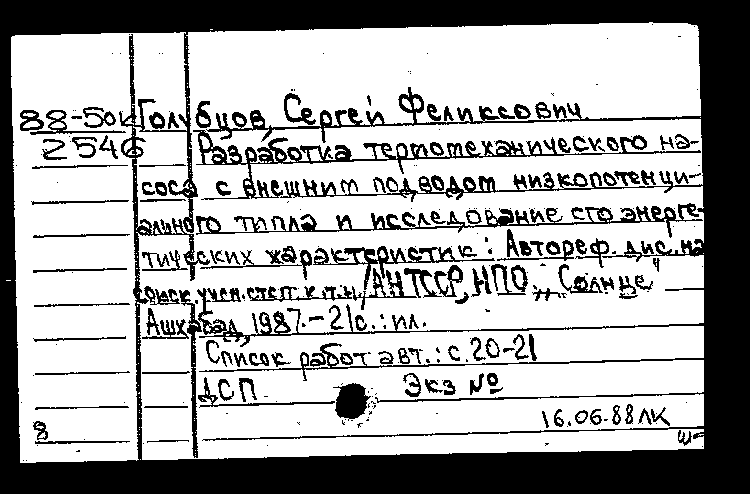 88-50к Голубцов, Сергей Феликсович
2546 Разработка термомеханического на-
соса с внешним подводом низкопотенци-
ального типла и исследование его энерге-
тических характеристик: Автореф. дис. на
соиск. учен. степ. к.т.н. / АН ТССР, НПО „Солнце"
Ашхабад, 1987.-21с.: ил.
Список работ авт.: с.20-21
ДСП Экз №
16.06.88 ЛК
8
ш-